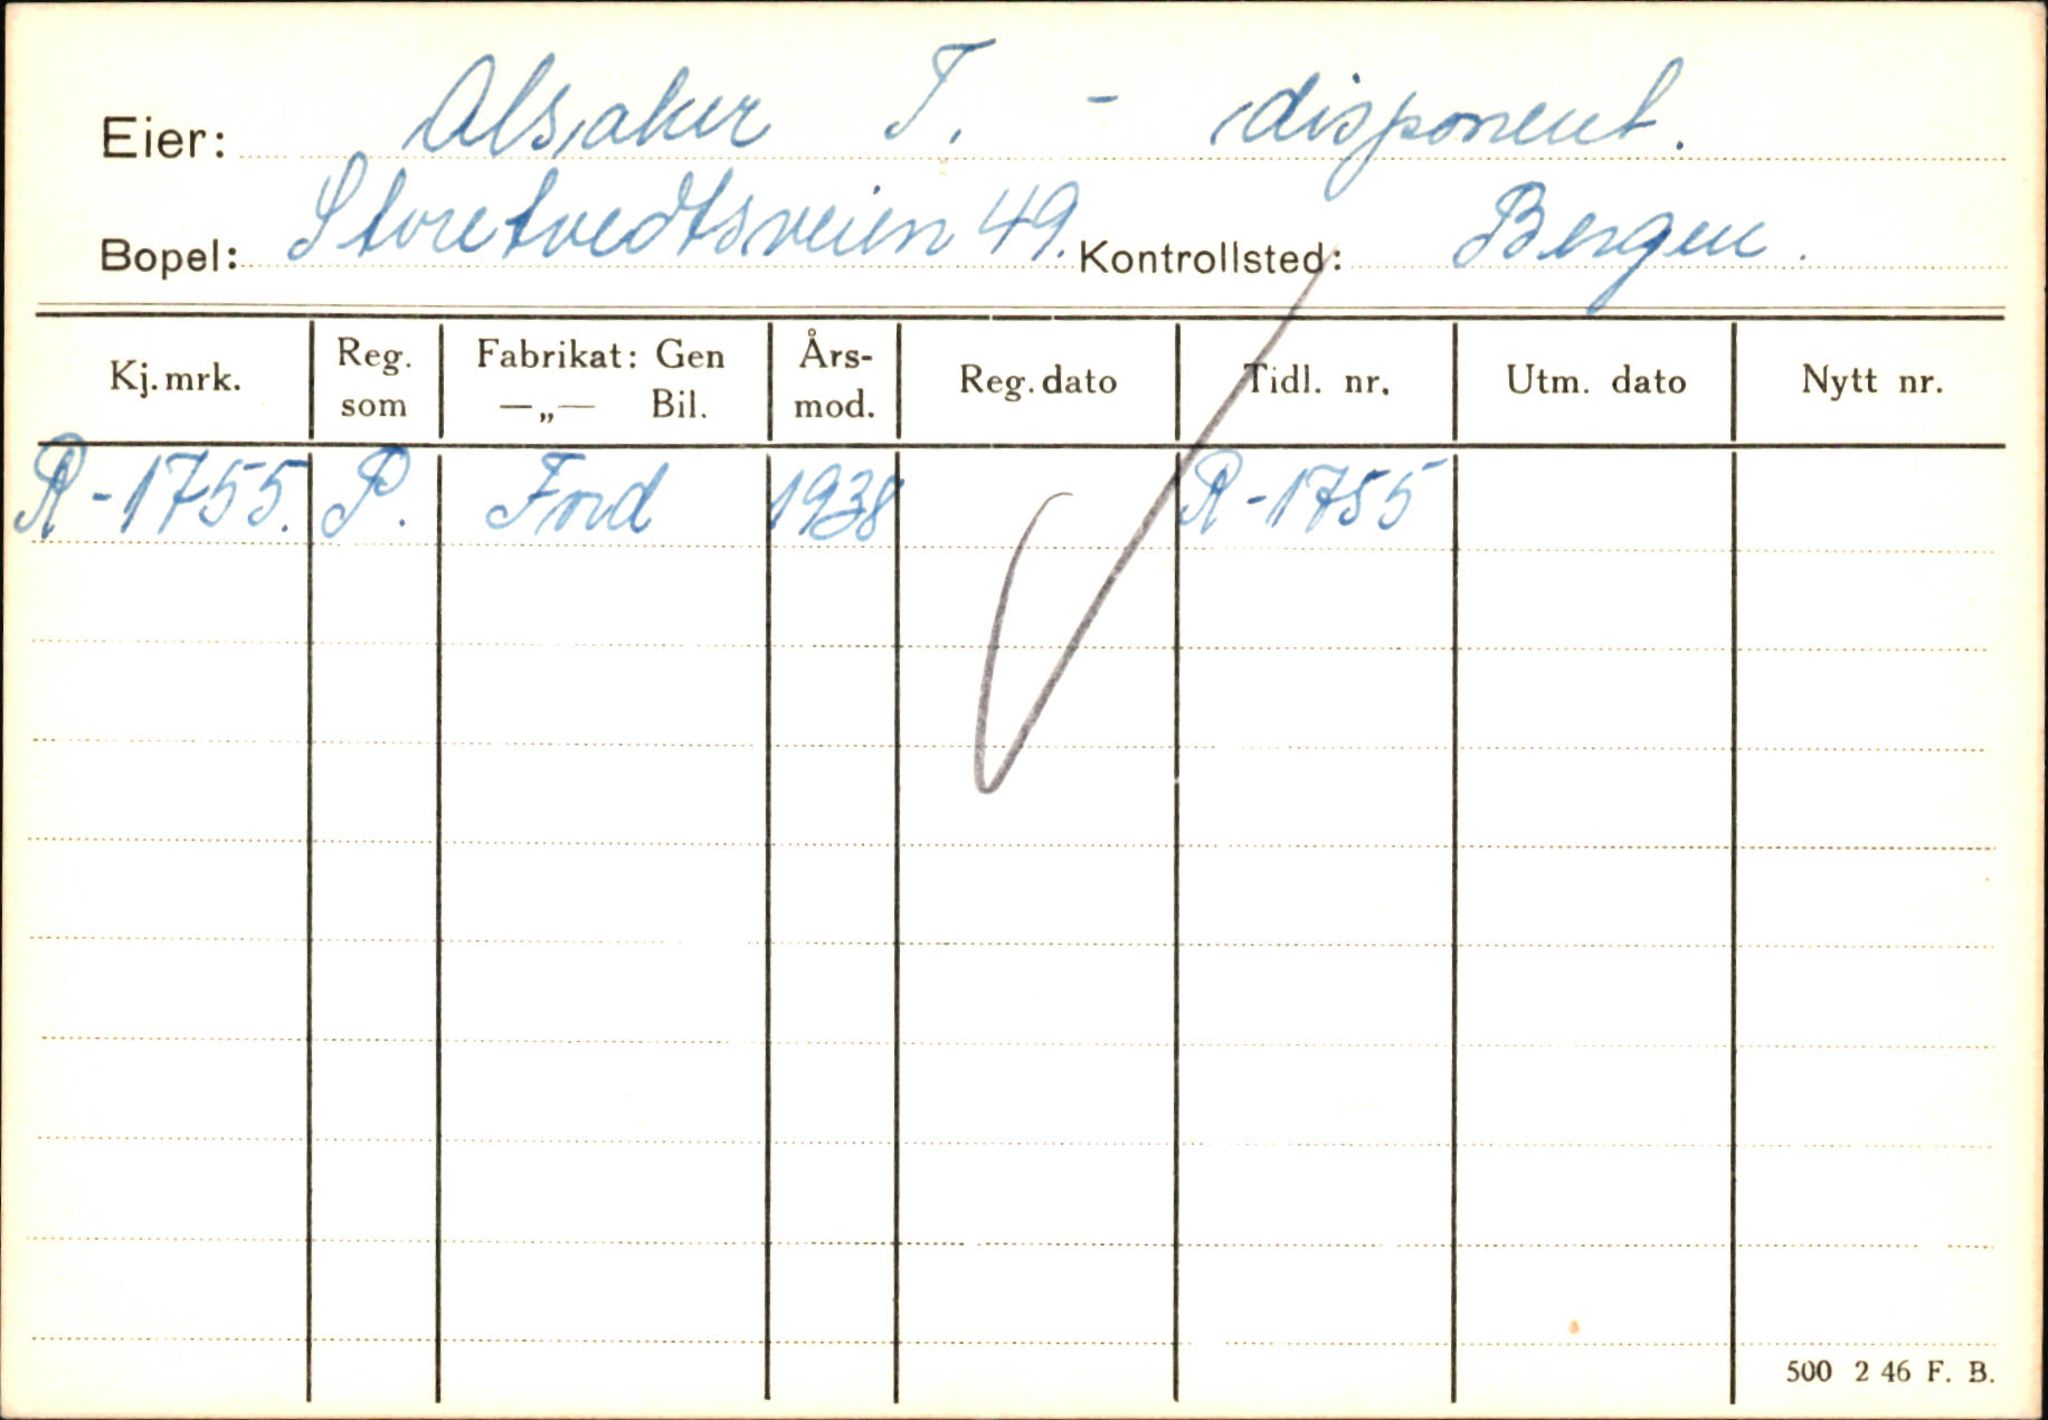 Eier: Alsaker T. - disponent.
Bopel: Storetvedtsveien 49. Kontrollsted: Bergen.
Kj. mrk. Reg. som Fabrikat: Gen —„— Bil. Års- mod. Reg. dato Tidl. nr. Utm. dato Nytt nr.
R-1755. P. Ford 1938 R-1755
500 2 46 F. B.